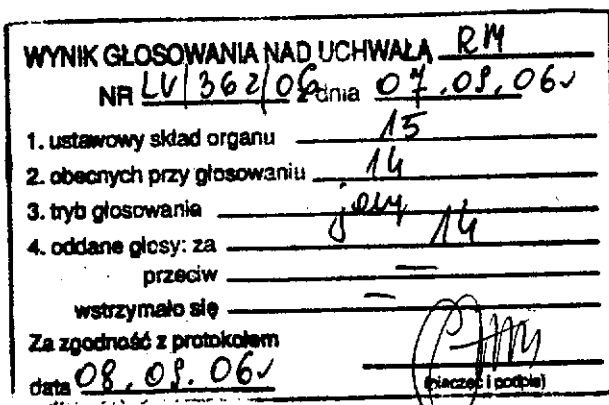 WYNIK GŁOSOWANIA NAD UCHWAŁĄ RM
NR LV/362/06 z dnia 07.09.06r
1. ustawowy skład organu 15
2. obecnych przy głosowaniu 14
3. tryb głosowania jawny
4. oddane głosy: za 14
przeciw —
wstrzymało się —
Za zgodność z protokołem
data 08.09.06r
(pieczęć i podpis)